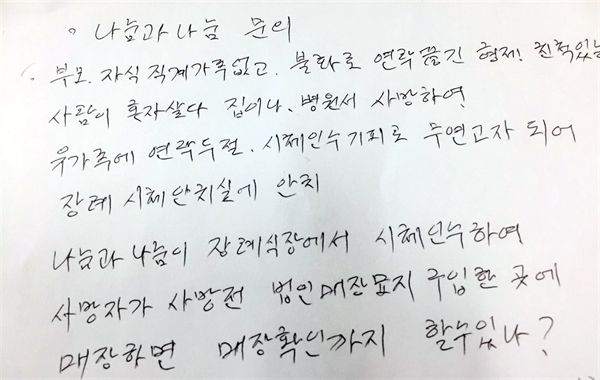 ◦ 나눔과 나눔 문의
◦ 부모. 자식 직계가족없고. 불화로 연락끊긴 형제! 친척있는
사람이 혼자살다 집이나. 병원서 사망하여
유가족에 연락두절. 시체인수기피로 무연고자 되어
장례 시체안치실에 안치
나눔과 나눔이 장례식장에서 시체인수하여
사망자가 사망전 법인매장묘지 구입한 곳에
매장하면 매장확인까지 할수있나?